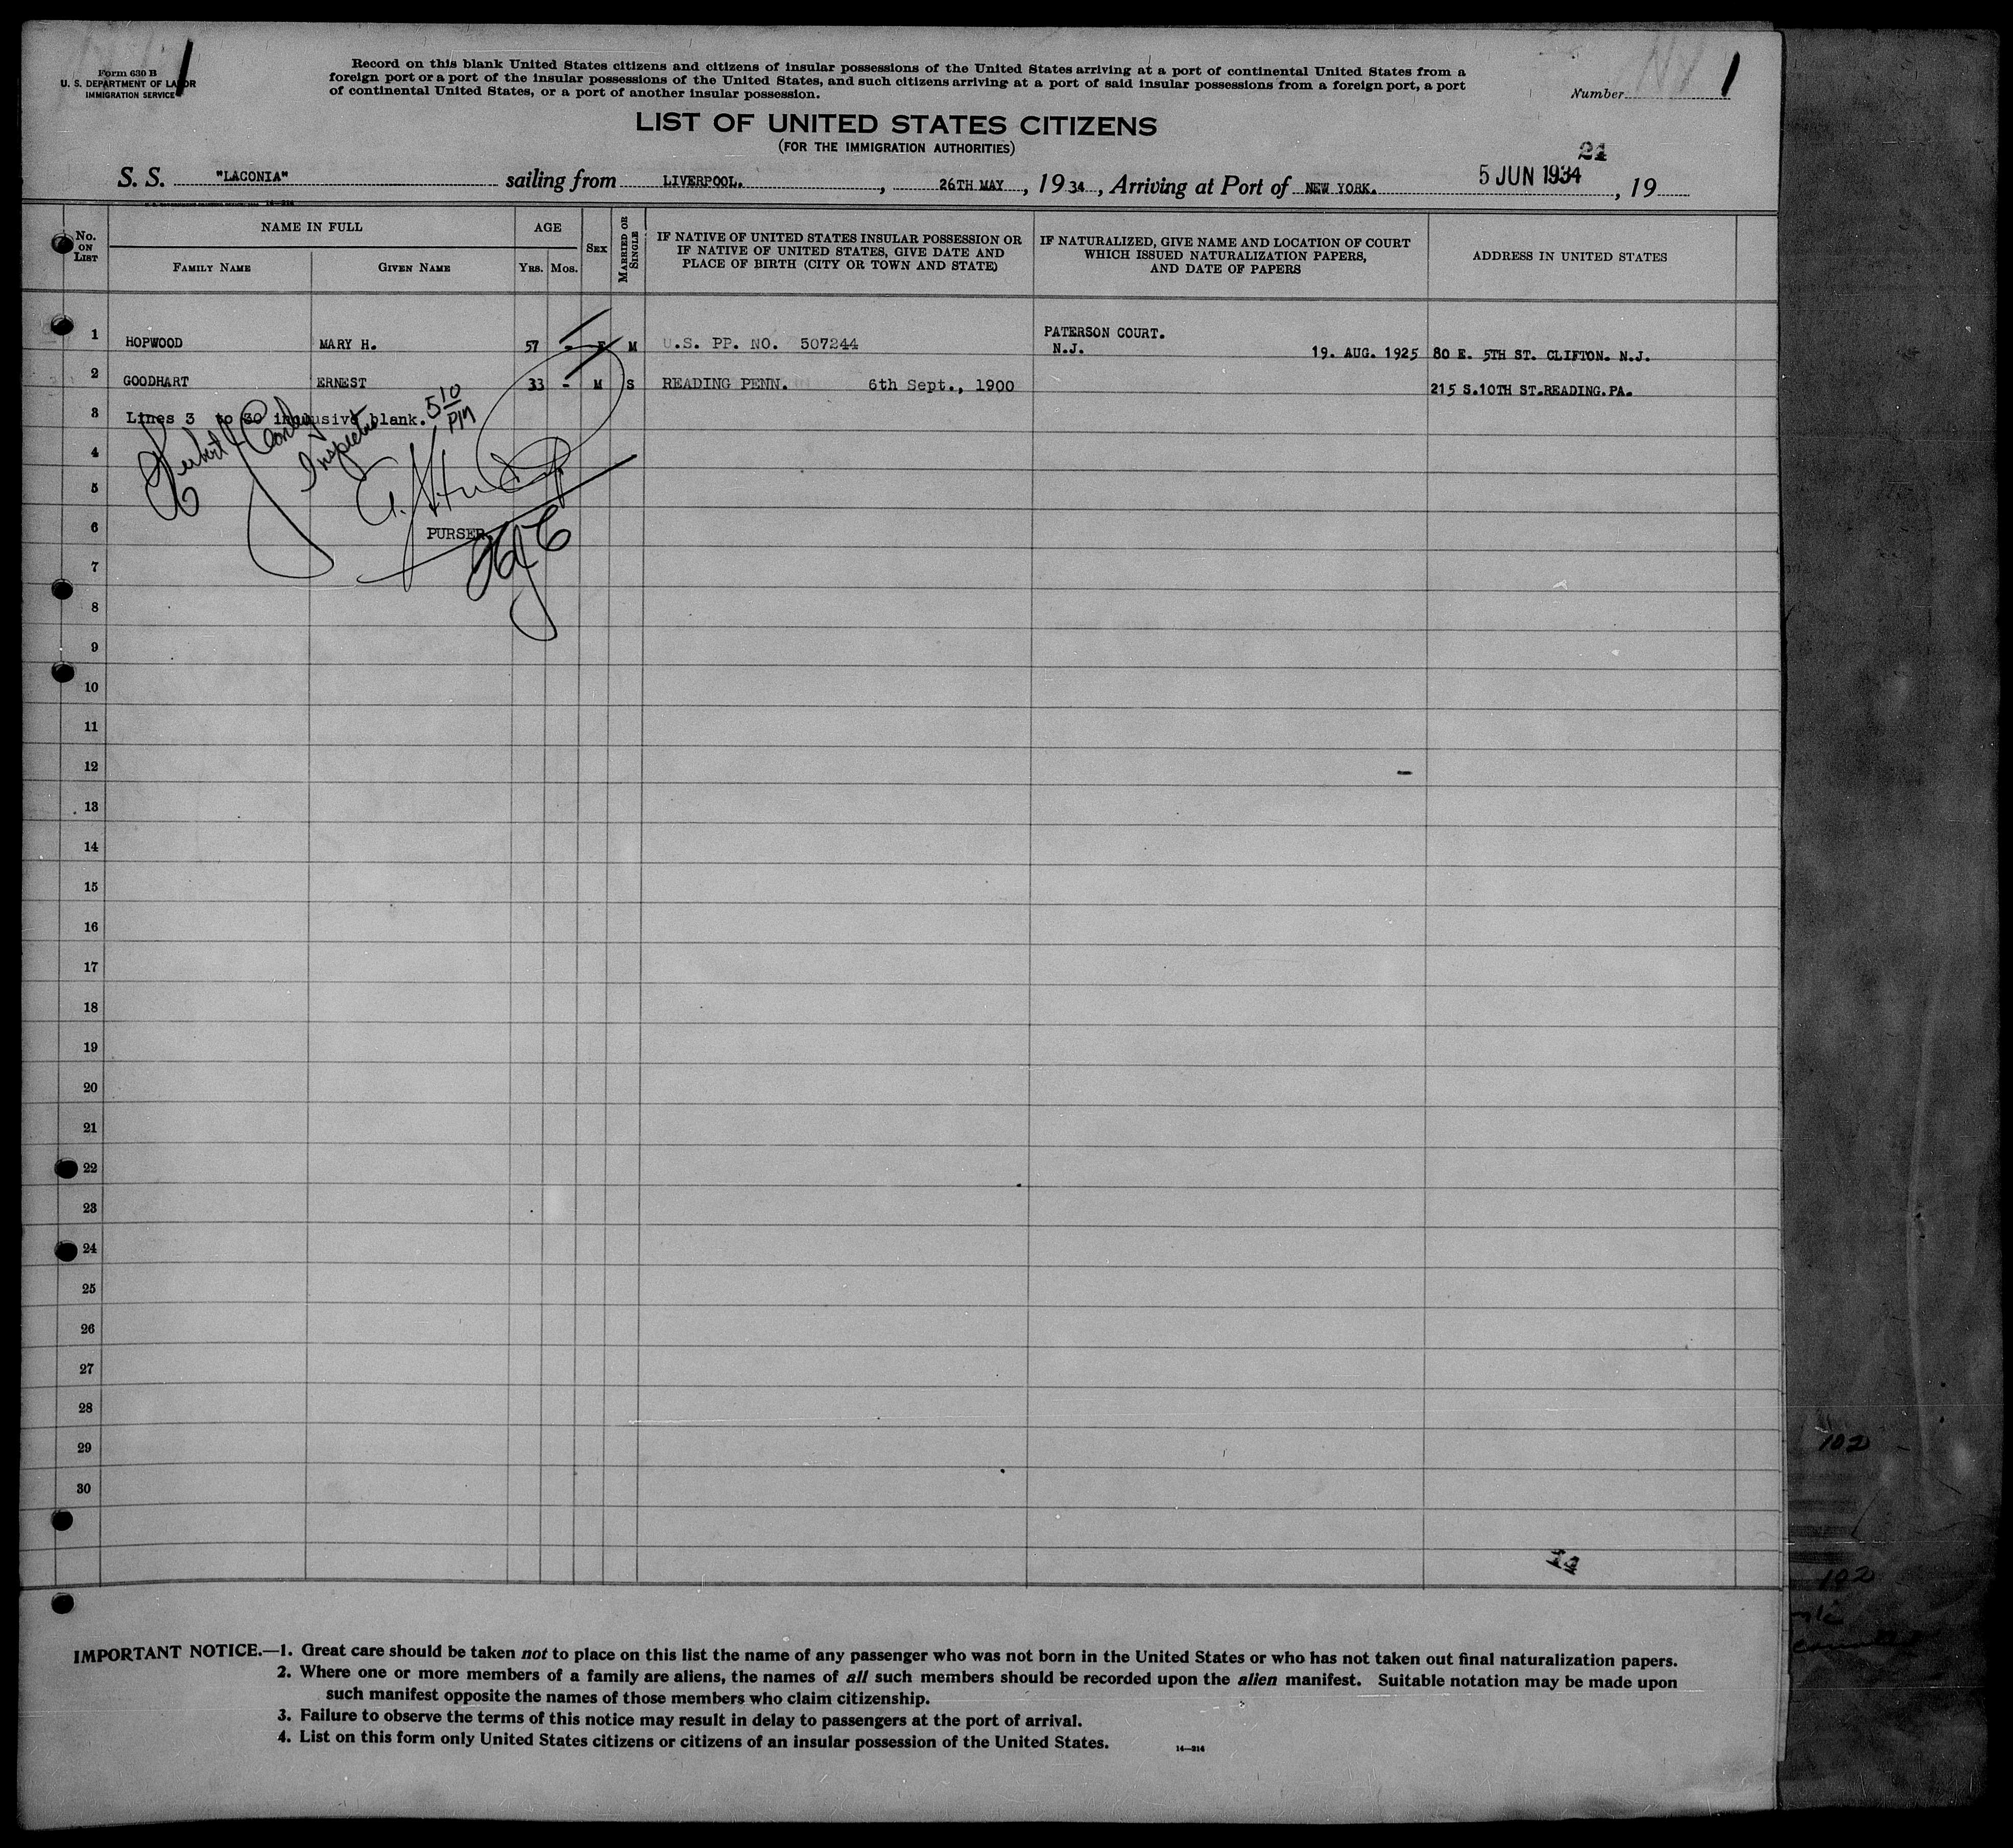 Form 630 B
U. S. DEPARTMENT OF LABOR
IMMIGRATION SERVICE
Record on this blank United States citizens and citizens of insular possessions of the United States arriving at a port of continental United States from a
foreign port or a port of the insular possessions of the United States, and such citizens arriving at a port of said insular possessions from a foreign port, a port
of continental United States, or a port of another insular possession.
NY 1
Number
LIST OF UNITED STATES CITIZENS
(FOR THE IMMIGRATION AUTHORITIES)
S. S. "LACONIA" sailing from LIVERPOOL. , 26TH MAY , 19 34 , Arriving at Port of NEW YORK. 5 JUN 1934 , 19
No. ON LIST
NAME IN FULL
FAMILY NAME GIVEN NAME
AGE
YRS. MOS.
SEX
MARRIED OR SINGLE
IF NATIVE OF UNITED STATES INSULAR POSSESSION OR
IF NATIVE OF UNITED STATES, GIVE DATE AND
PLACE OF BIRTH (CITY OR TOWN AND STATE)
IF NATURALIZED, GIVE NAME AND LOCATION OF COURT
WHICH ISSUED NATURALIZATION PAPERS,
AND DATE OF PAPERS
ADDRESS IN UNITED STATES
1 HOPWOOD MARY H. 57 - F M U.S. PP. NO. 507244 PATERSON COURT. N.J. 19. AUG. 1925 80 E. 5TH ST. CLIFTON. N.J.
2 GOODHART ERNEST 33 - M S READING PENN. 6th Sept., 1900 215 S.10TH ST.READING.PA.
3 Lines 3 to 30 inclusive blank. 5 10 PM
Inspector
4
5
6 PURSER
7
8
9
10
11
12
13
14
15
16
17
18
19
20
21
22
23
24
25
26
27
28
29
30
IMPORTANT NOTICE.—1. Great care should be taken not to place on this list the name of any passenger who was not born in the United States or who has not taken out final naturalization papers.
2. Where one or more members of a family are aliens, the names of all such members should be recorded upon the alien manifest. Suitable notation may be made upon
such manifest opposite the names of those members who claim citizenship.
3. Failure to observe the terms of this notice may result in delay to passengers at the port of arrival.
4. List on this form only United States citizens or citizens of an insular possession of the United States.
14—214
102
102